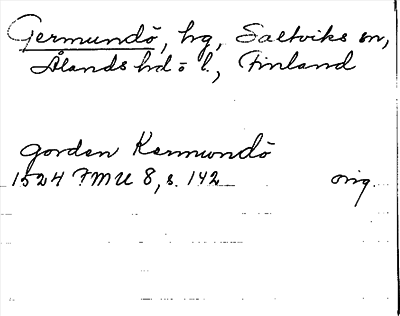 Germundö, hg, Saltviks sn,
Ålands hd o l., Finland
gorden Kermundö
1524 FMU 8, s. 142 orig.